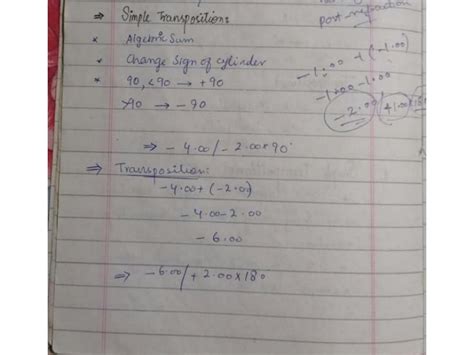 ⇒ Simple Transposition:
post-refraction
× Algebraic Sum
× Change Sign of cylinder
-1.00 + (-1.00)
-1.00 -1.00
× 90, <90 → +90
-2.00 / +1.00 ×
>90 → -90
⇒ -4.00/-2.00×90°
⇒ Transposition:
-4.00+(-2.00)
-4.00-2.00
-6.00
⇒ -6.00/+2.00×180